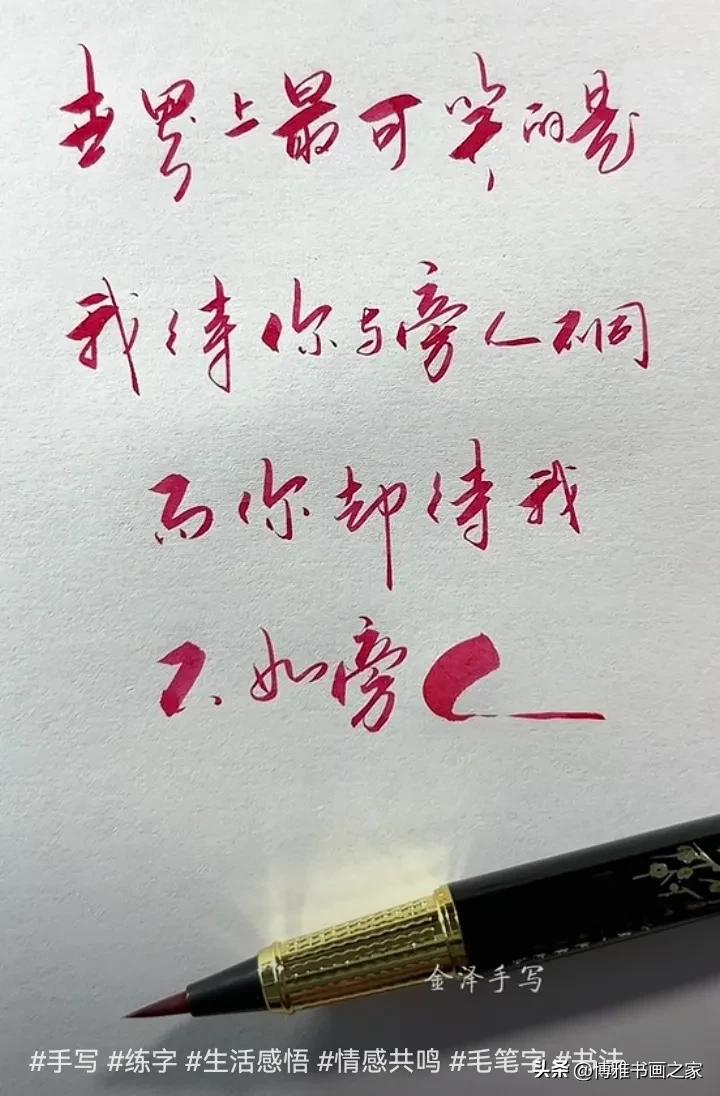 世界上最可笑的是
我待你与旁人不同
而你却待我
不如旁人
金泽手写
#手写 #练字 #生活感悟 #情感共鸣 #毛笔字 #书法
头条 @博雅书画之家